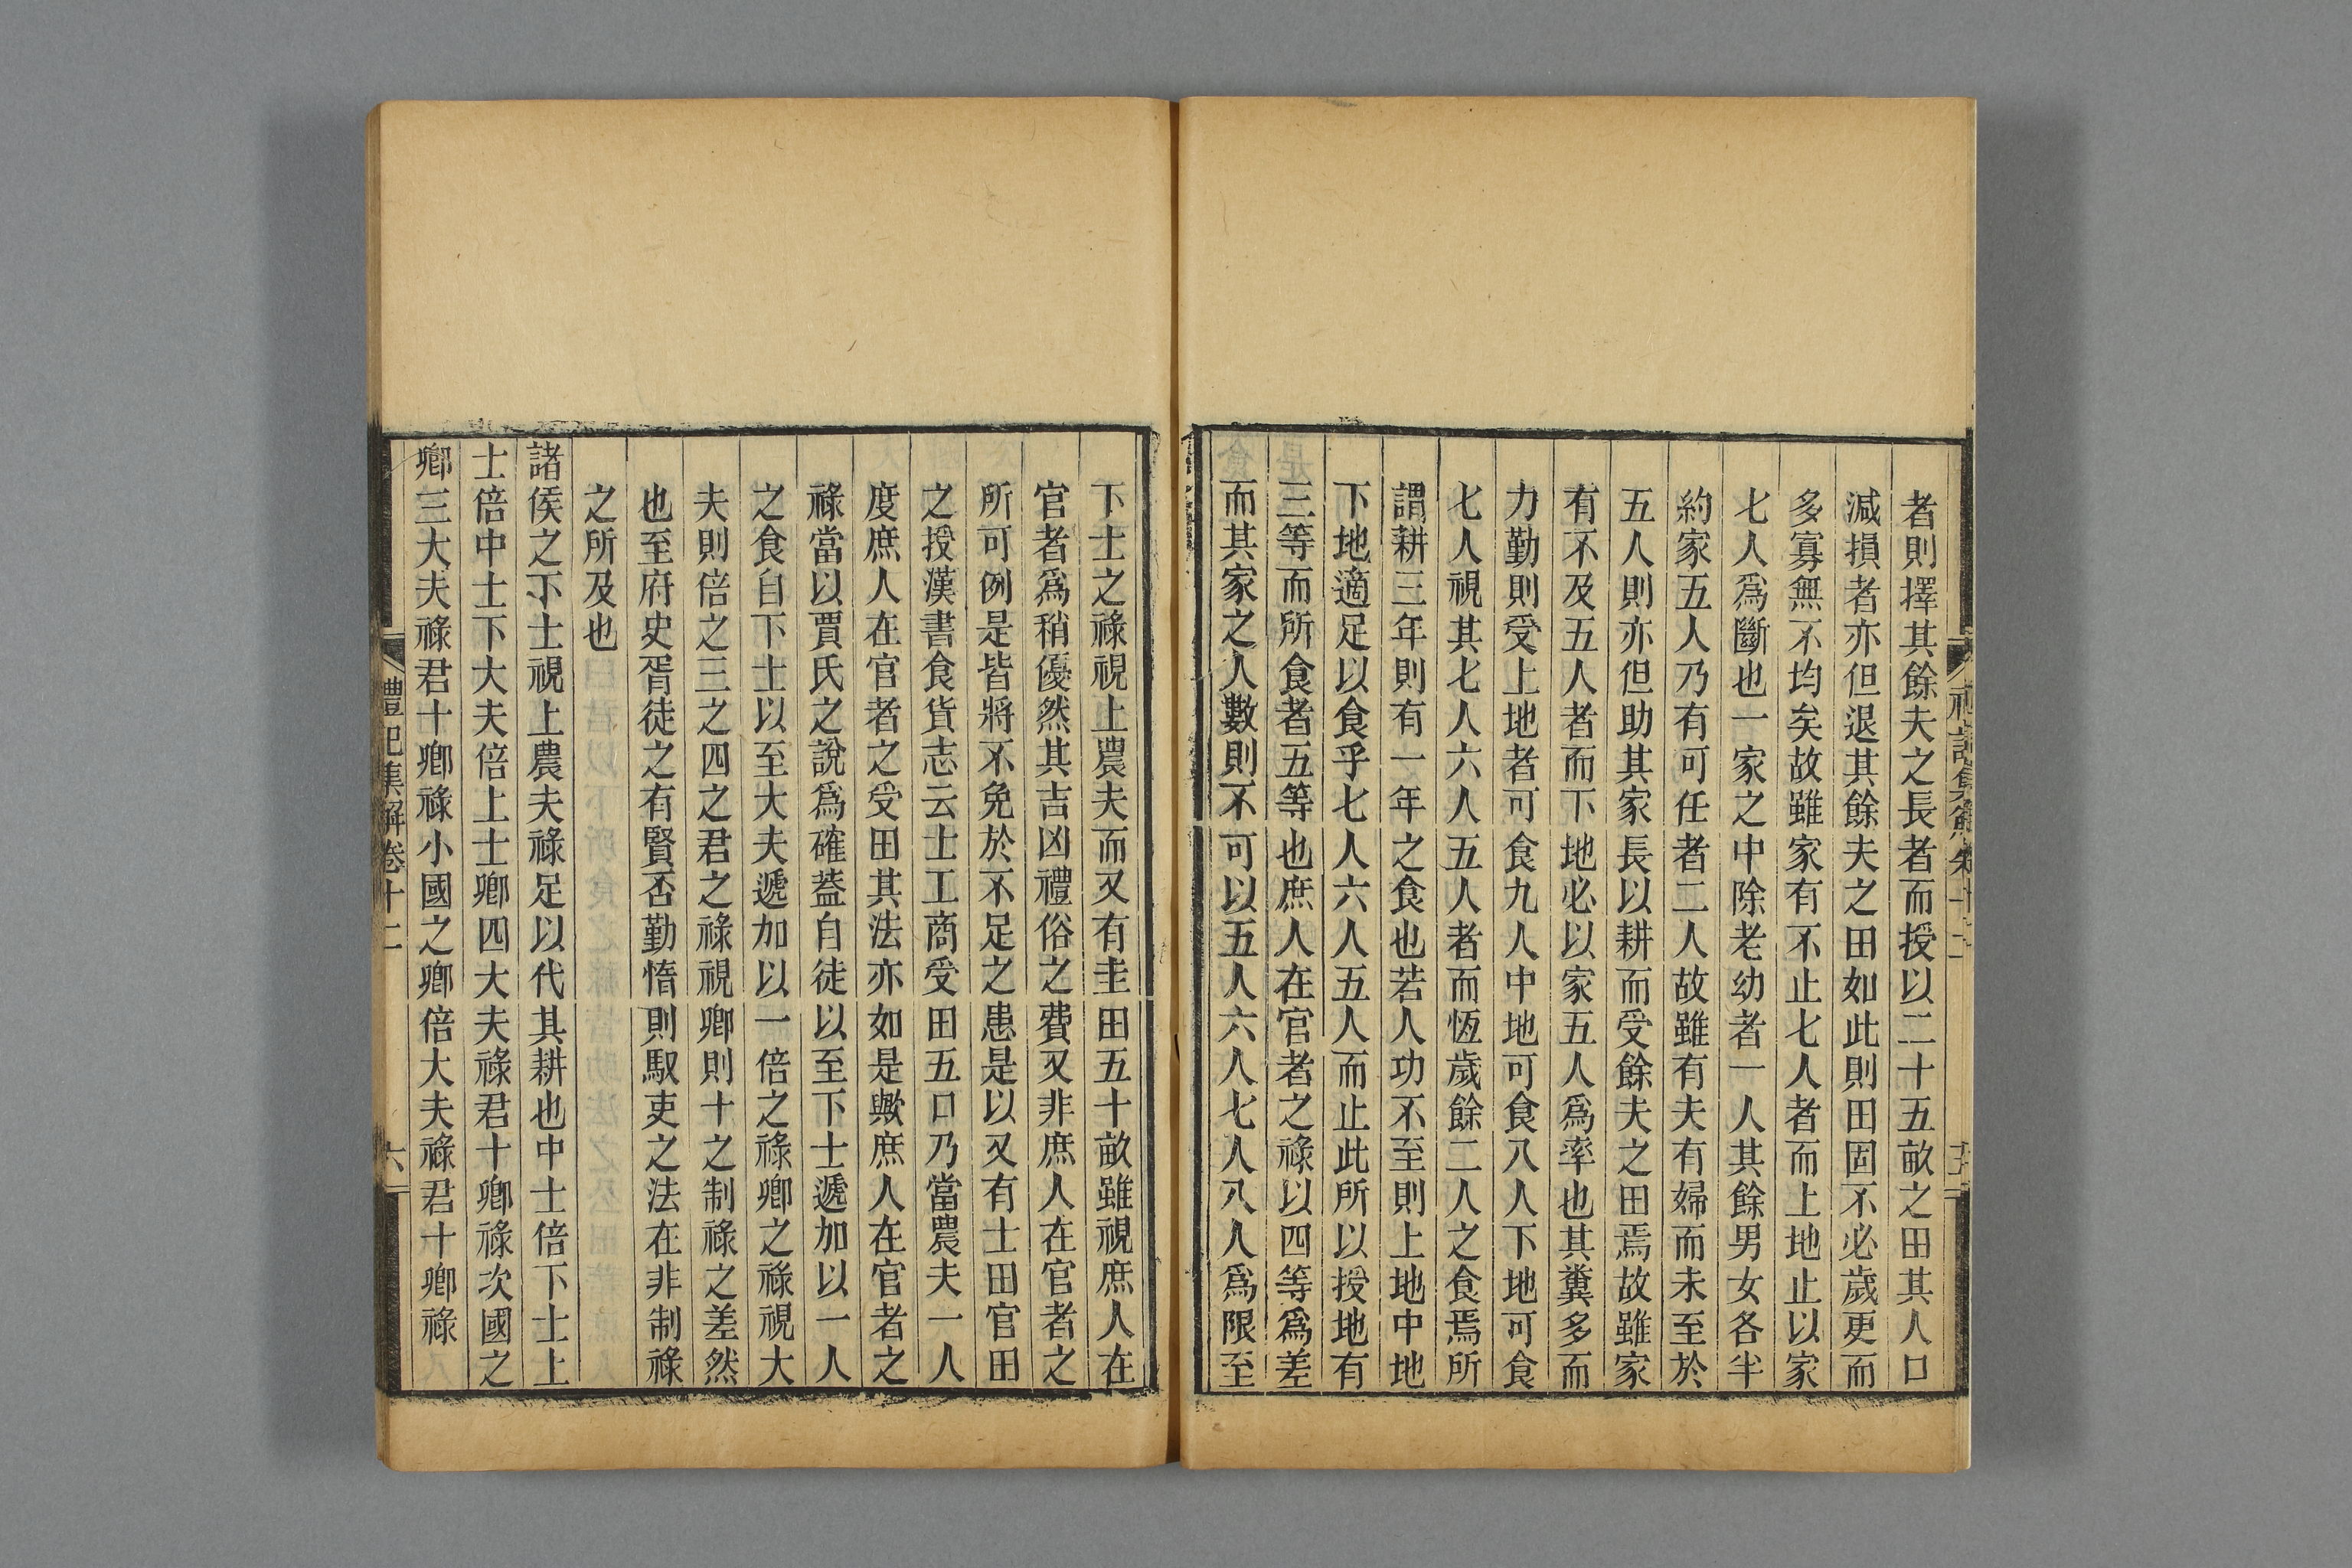 者則擇其餘夫之長者而授以二十五畝之田其人口
減損者亦但退其餘夫之田如此則田固不必歲更而
多寡無不均矣故雖家有不止七人者而上地止以家
七人爲斷也一家之中除老幼者一人其餘男女各半
約家五人乃有可任者二人故雖有夫有婦而未至於
五人則亦但助其家長以耕而受餘夫之田焉故雖家
有不及五人者而下地必以家五人爲率也其糞多而
力勤則受上地者可食九人中地可食八人下地可食
七人視其七人六人五人者而恆歲餘二人之食焉所
謂耕三年則有一年之食也若人功不至則上地中地
下地適足以食乎七人六人五人而止此所以授地有
三等而所食者五等也庶人在官者之祿以四等爲差
而其家之人數則不可以五人六人七人八人爲限至
下士之祿視上農夫而又有圭田五十畝雖視庶人在
官者爲稍優然其吉凶禮俗之費又非庶人在官者之
所可例是皆將不免於不足之患是以又有士田官田
之授漢書食貨志云士工商受田五口乃當農夫一人
度庶人在官者之受田其法亦如是歟庶人在官者之
祿當以賈氏之說爲確蓋自徒以至下士遞加以一人
之食自下士以至大夫遞加以一倍之祿卿之祿視大
夫則倍之三之四之君之祿視卿則十之制祿之差然
也至府史胥徒之有賢否勤惰則馭吏之法在非制祿
之所及也
諸侯之下士視上農夫祿足以代其耕也中士倍下士上
士倍中士下大夫倍上士卿四大夫祿君十卿祿次國之
卿三大夫祿君十卿祿小國之卿倍大夫祿君十卿祿
禮記集解卷十二
六